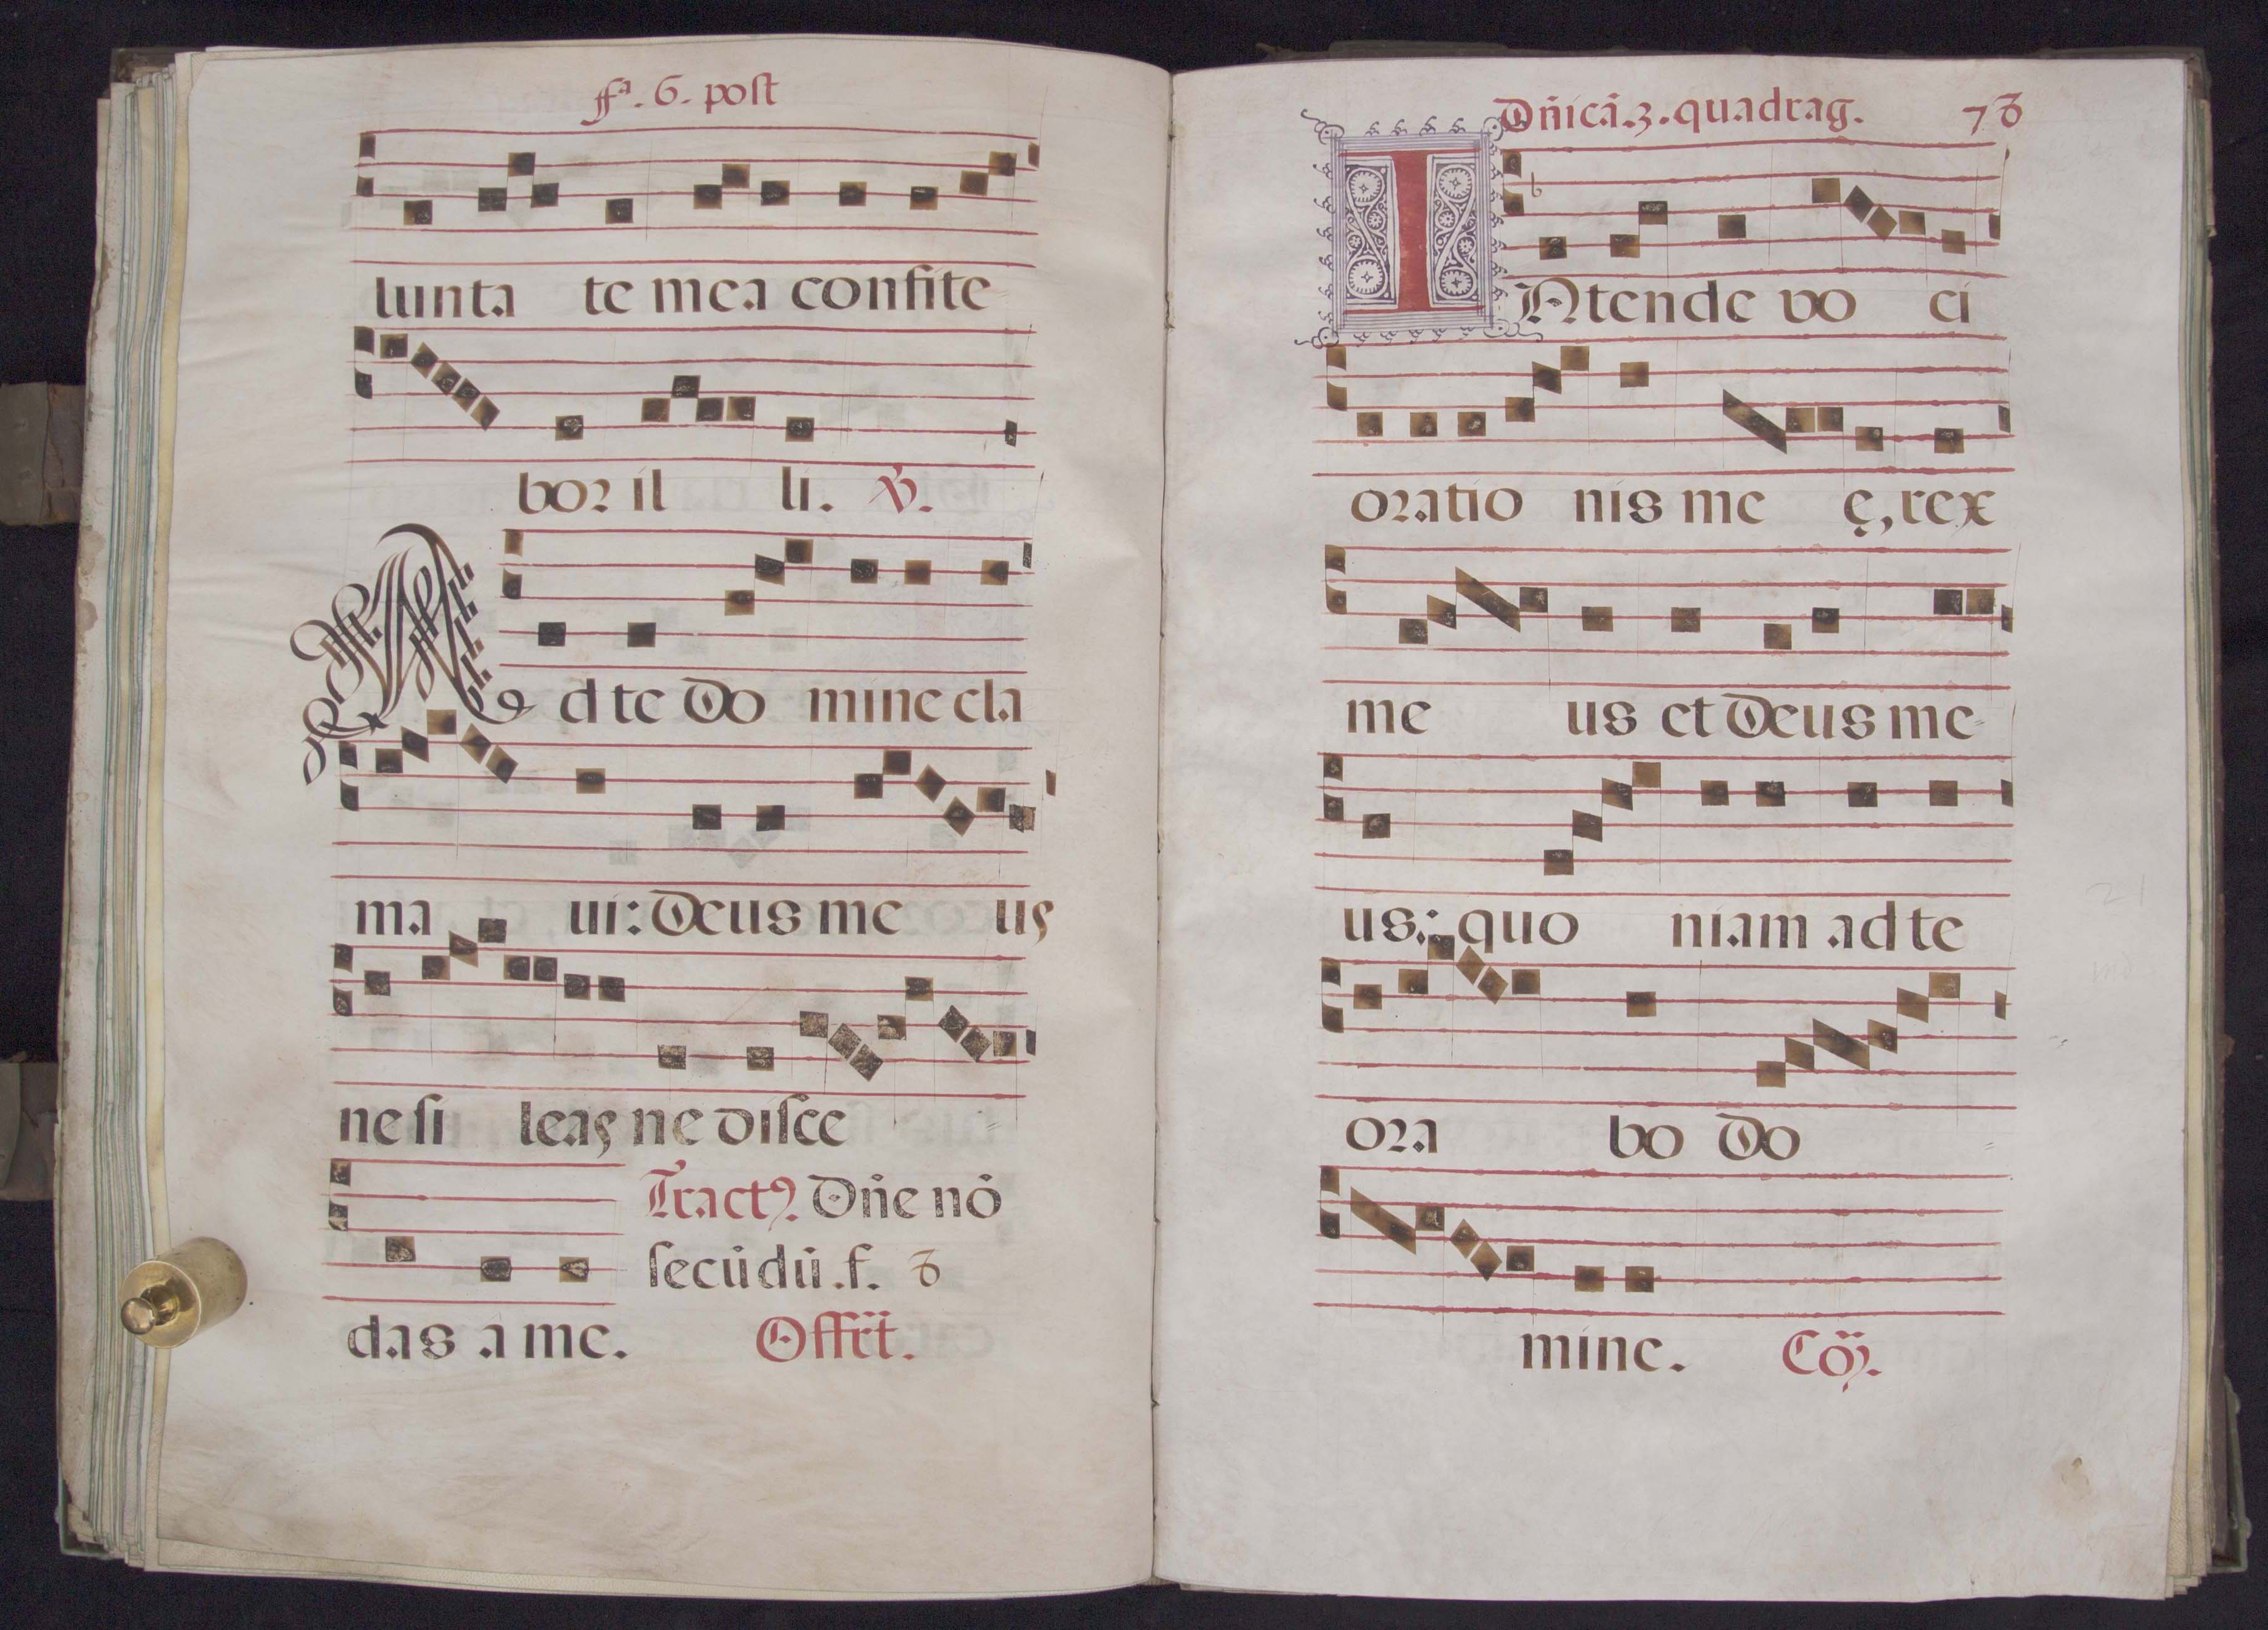 fſª. 6. poſt
lunta te mea confite
bor il li. ℣.
Ad te do mine cla
ma ui: Deus me us
ne ſi leas ne diſce
Tractꝰ. Dn̄e nō
ſecūdū. f. 8
das a me. Offr̄t.
Dn̄icā. 3. quadrag. 78
INtende vo ci
oratio nis me ę, rex
me us et Deus me-
us: quo niam ad te
ora bo do =
mine. Cōɀ.